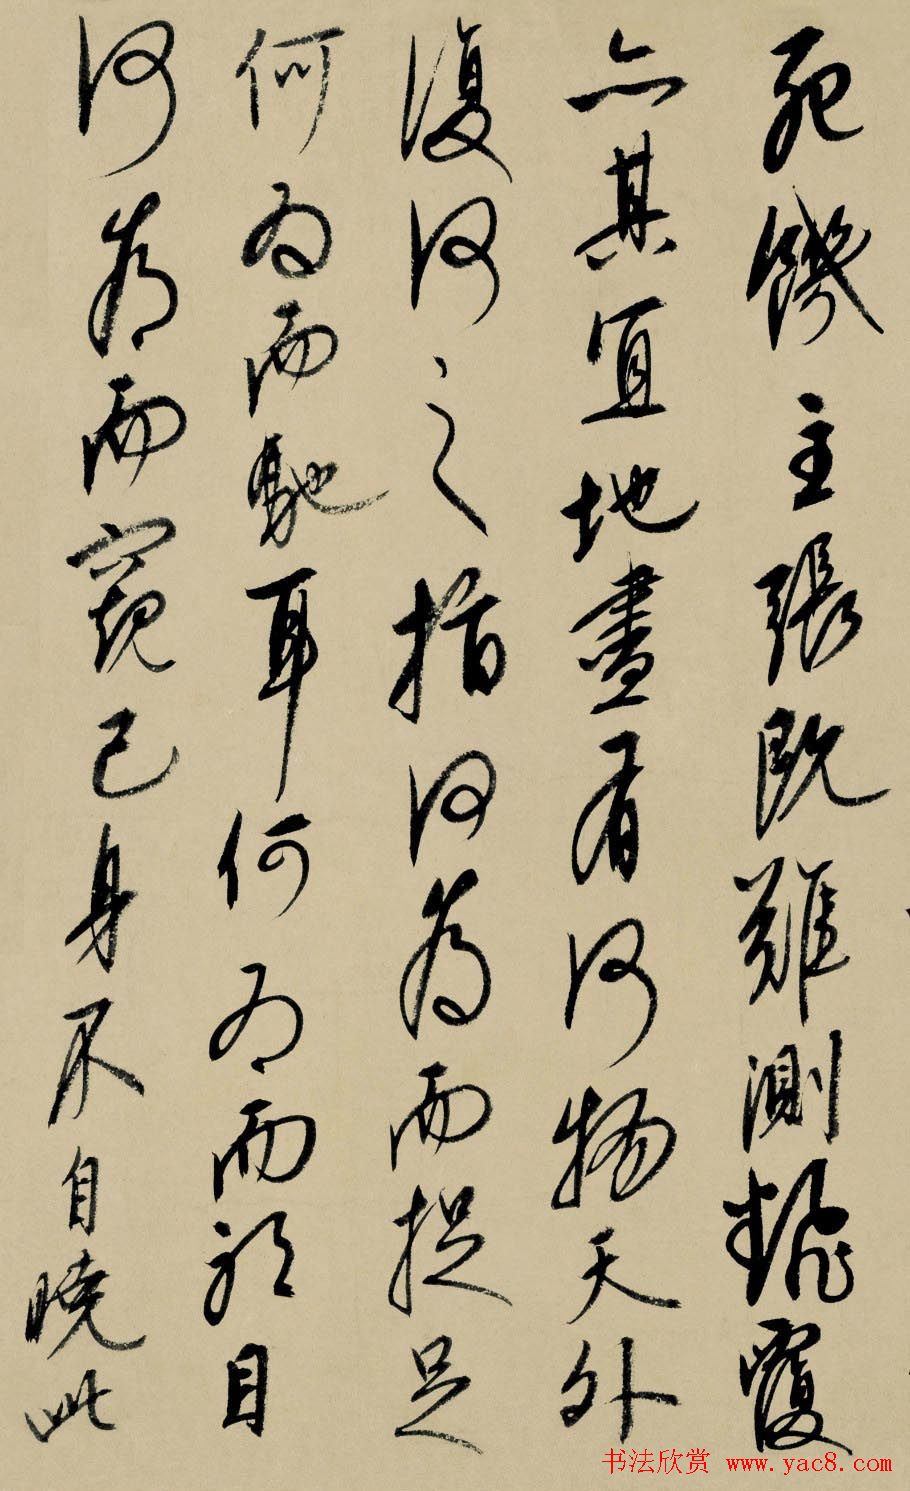 死饑主張既難測飜覆
亦其宜地盡有何物天外
復何之指何為而捉足
何為而馳耳何為而聽目
何為而窺己身不自曉此
书法欣赏 www.yac8.com